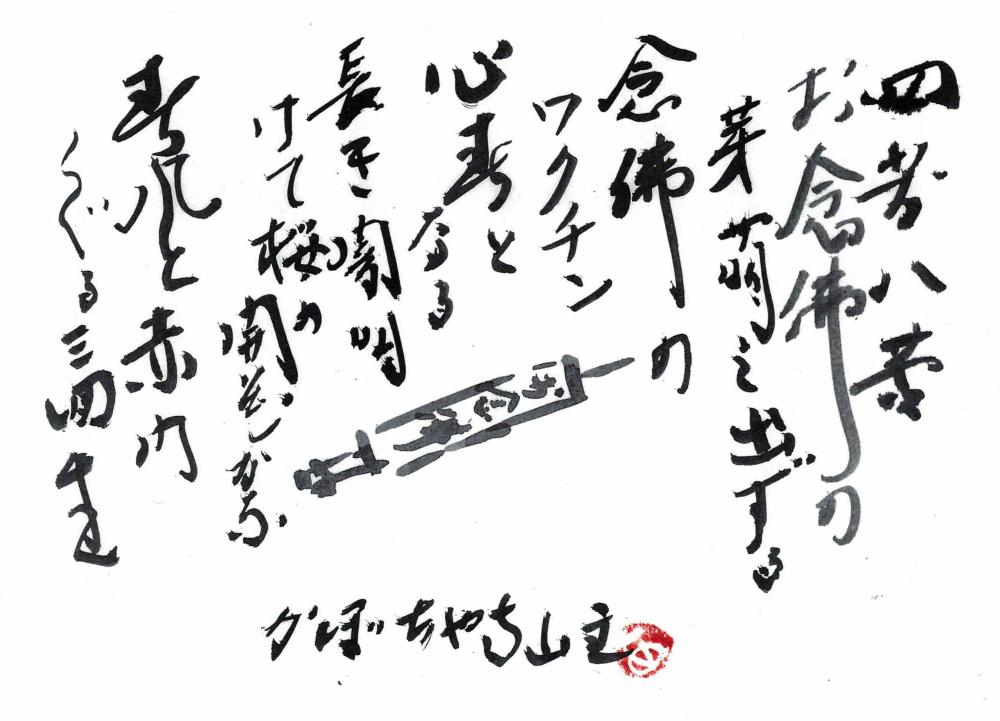 四苦八苦
お念佛の
芽萌え出ずる
念佛の
ワクチン
心春と
なる
長き闇明
けて桜の
開花かな
春風と赤門
くぐる三回生
お念佛
かぼちゃ寺山主